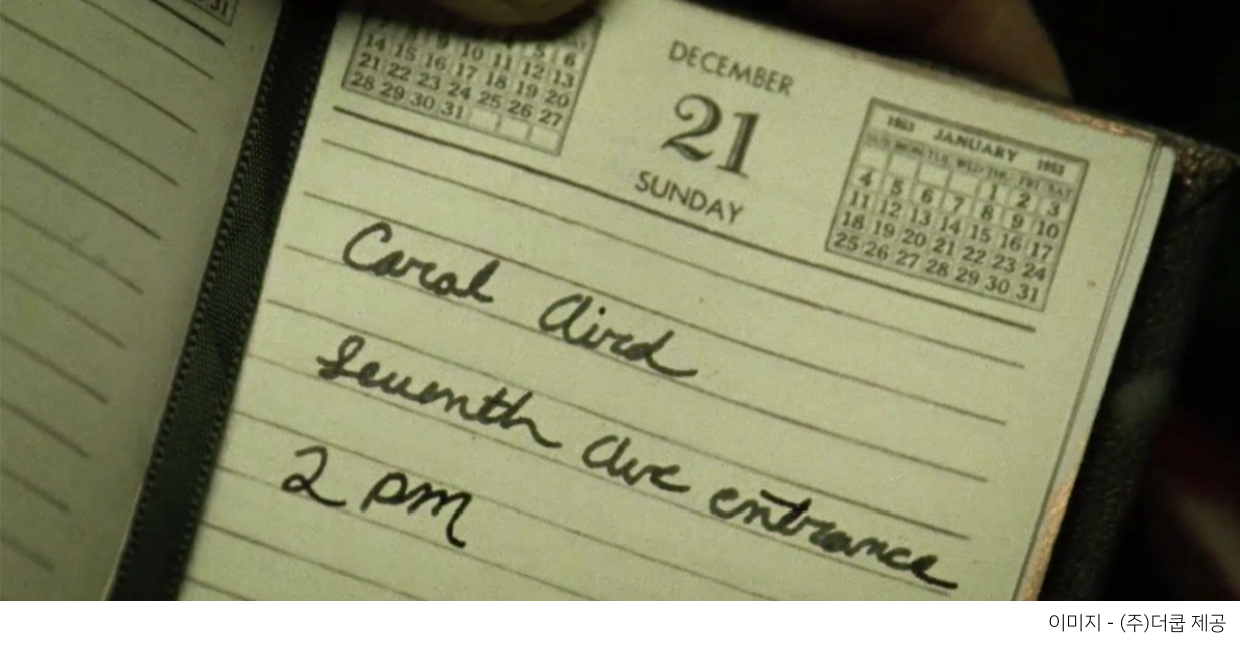 31
14 15 16 17 18 19 20
21 22 23 24 25 26 27
28 29 30 31
DECEMBER
21
SUNDAY
1953 JANUARY 1953
SUN MON TUE WED THU FRI SAT
1 2 3
4 5 6 7 8 9 10
11 12 13 14 15 16 17
18 19 20 21 22 23 24
25 26 27 28 29 30 31
Carol Aird
Seventh Ave entrance
2 pm
이미지 - (주)더쿱 제공